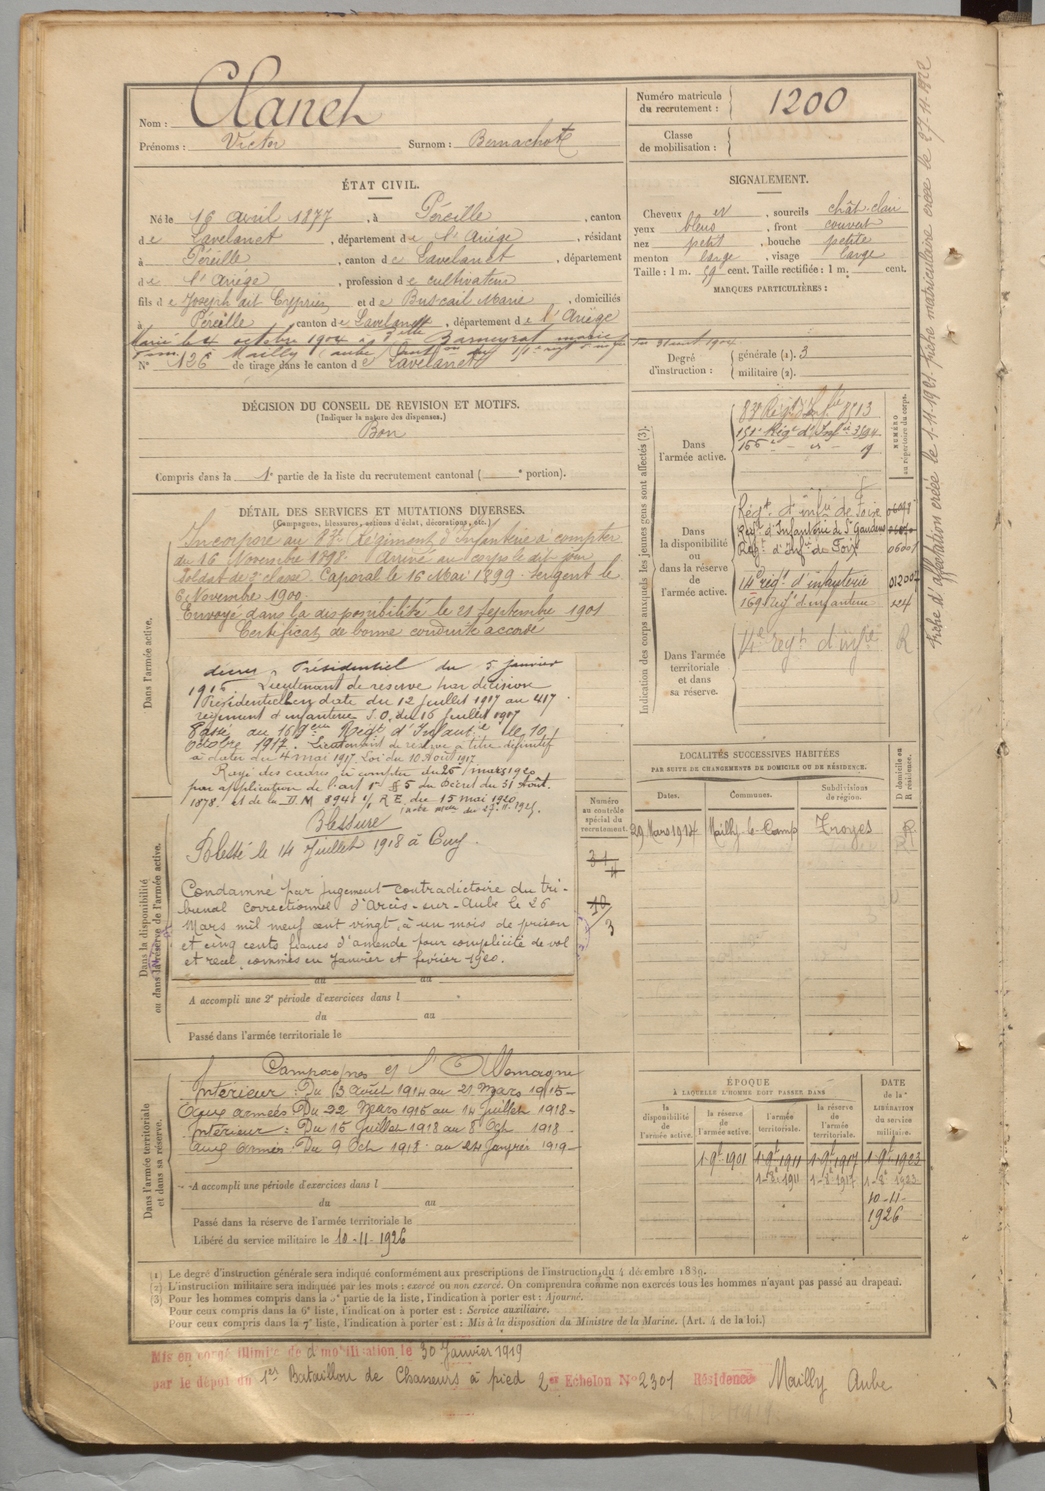 Nom : Clanet
Prénoms : Victor Surnom : Bernachot
Numéro matricule du recrutement : 1200
Classe de mobilisation :
ÉTAT CIVIL.
Né le 16 avril 1877, à Péreille, canton
de Lavelanet, département de l'Ariège, résidant
à Péreille, canton de Lavelanet, département
de l'Ariège, profession de cultivateur
fils de Joseph dit Cyprien et de Buscail Marie, domiciliés
à Péreille, canton de Lavelanet, département de l'Ariège
Marié le 4 octobre 1904 à Delle Bameyrat marie
N° 126 de tirage dans le canton de Lavelanet
SIGNALEMENT.
Cheveux N, sourcils chât-clair
yeux bleus, front couvert
nez petit, bouche petite
menton large, visage large
Taille : 1 m. 59 cent. Taille rectifiée : 1 m. cent.
MARQUES PARTICULIÈRES :
Degré d'instruction : générale (1). 3
militaire (2).
DÉCISION DU CONSEIL DE REVISION ET MOTIFS.
(Indiquer la nature des dispenses.)
Bon
Compris dans la 1e partie de la liste du recrutement cantonal ( e portion).
DÉTAIL DES SERVICES ET MUTATIONS DIVERSES.
(Campagnes, blessures, actions d'éclat, décorations, etc.)
Dans l'armée active.
Incorporé au 83e Régiment d'Infanterie à compter
du 16 Novembre 1898. Arrivé au corps le dit jour
Soldat de 2e classe. Caporal le 16 Mai 1899. Sergent le
6 Novembre 1900.
Envoyé dans la disponibilité le 21 Septembre 1901
Certificat de bonne conduite accordé
Présidentiel du 5 janvier
Lieutenant de réserve par décision
Présidentielle en date du 12 Juillet 1917 au 417
régiment d'infanterie J.O. du 16 Juillet 1917
Passé au 169em Régt d'Infantie le 10
Octobre 1917. Lieutenant de réserve à titre définitif
à dater du 4 mai 1917. Loi du 10 Août 1917
Rayé des cadres à compter du 25 mars 1920
par application de l'art 1er § 5 du Décret du 31 Août
1878. et de la D.M 8941 c/ R E. du 15 mai 1920
Blessure
Blessé le 14 Juillet 1918 à Cuy.
Dans la disponibilité ou dans la réserve de l'armée active.
Condamné par jugement contradictoire du tri-
bunal correctionnel d'Arcis-sur-Aube le 26
Mars mil neuf cent vingt, à un mois de prison
et cinq cents francs d'amende pour complicité de vol
et recel commis en Janvier et février 1920.
du au
A accompli une 2e période d'exercices dans l
du au
Passé dans l'armée territoriale le
Numéro au contrôle spécial du recrutement.
10
3
Indication des corps auxquels les jeunes gens sont affectés (3).
NUMÉRO au répertoire du corps.
Dans l'armée active.
83e Régt d'Infie 8513
151e Régt d'Infie 3694
Dans la disponibilité ou dans la réserve de l'armée active.
Régt d'infie de Foix
Regt d'Infanterie de St Gaudens
Régt d'Infie de Foix 06001
14e régt d'infanterie 012007
169 Régt d'infanterie 124
Dans l'armée territoriale et dans sa réserve.
14e regt d'infie R
LOCALITÉS SUCCESSIVES HABITÉES
PAR SUITE DE CHANGEMENTS DE DOMICILE OU DE RÉSIDENCE.
Dates. Communes. Subdivisions de région. D domicile ou R résidence.
29 Mars 1914 Mailly-le-Camp Troyes R
Dans l'armée territoriale et dans sa réserve.
Campagnes et l'Allemagne
Intérieur : Du 3 Août 1914 au 21 Mars 1915-
Aux armées Du 22 Mars 1915 au 14 Juillet 1918-
Intérieur : Du 15 Juillet 1918 au 8 Oct 1918
Aux Armées : Du 9 Oct 1918 au 24 Janvier 1919-
A accompli une période d'exercices dans l
du au
Passé dans la réserve de l'armée territoriale le
Libéré du service militaire le 10-11-1926
ÉPOQUE
À LAQUELLE L'HOMME DOIT PASSER DANS
la disponibilité de l'armée active. la réserve de l'armée active. l'armée territoriale. la réserve de l'armée territoriale.
DATE de la LIBÉRATION du service militaire.
1-9bre 1901 1-9bre 1911 1-9bre 1917 1-9bre 1923
1-8e 1911 1-8e 1917 1-8e 1923
10-11-
1926
(1) Le degré d'instruction générale sera indiqué conformément aux prescriptions de l'instruction du 4 décembre 1889.
(2) L'instruction militaire sera indiquée par les mots : exercé ou non exercé. On comprendra comme non exercés tous les hommes n'ayant pas passé au drapeau.
(3) Pour les hommes compris dans la 5e partie de la liste, l'indication à porter est : Ajourné.
Pour ceux compris dans la 6e liste, l'indication à porter est : Service auxiliaire.
Pour ceux compris dans la 7e liste, l'indication à porter est : Mis à la disposition du Ministre de la Marine. (Art. 4 de la loi.)
Mis en congé illimité de démobilisation le 30 Janvier 1919
par le dépôt du 1er Bataillon de Chasseurs à pied 2e Echelon N° 2301 Résidence Mailly Aube
Fiche d'affectation créée le 1-11-1921. Fiche matriculaire créée le 27-11-1922